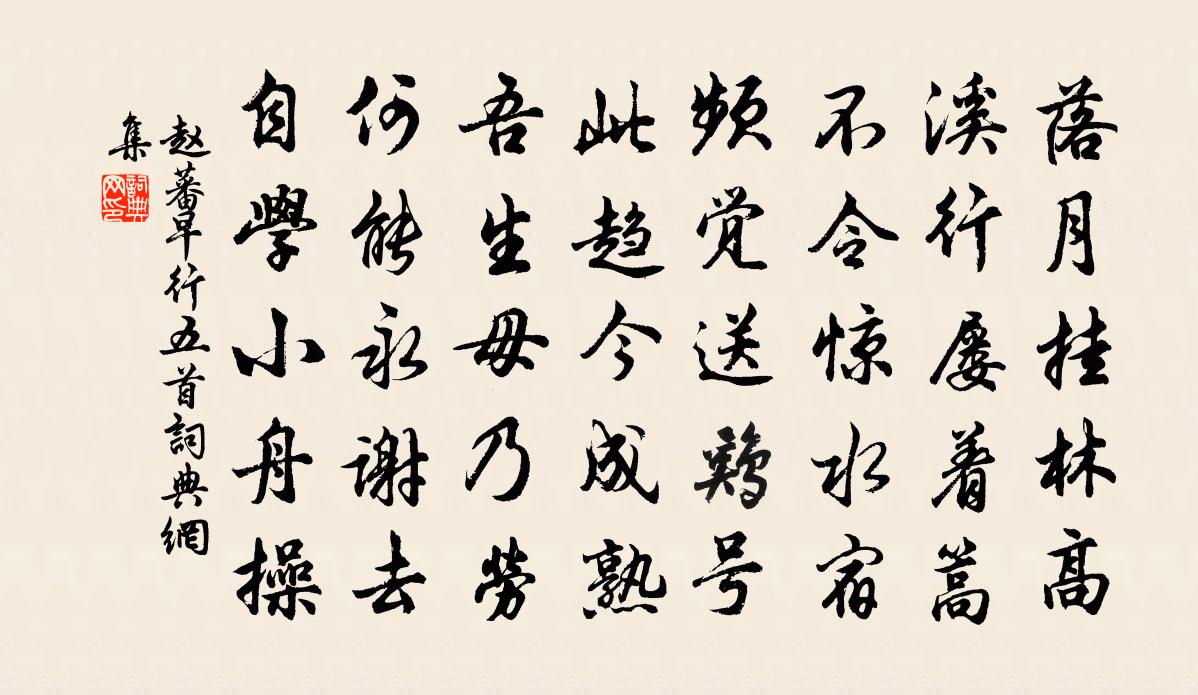 落月挂林高
溪行屡着篙
不令惊水宿
频觉送鶏号
此趋今成熟
吾生毋乃劳
何能永谢去
自學小舟操
赵蕃早行五首詞典網
集
詞典網印